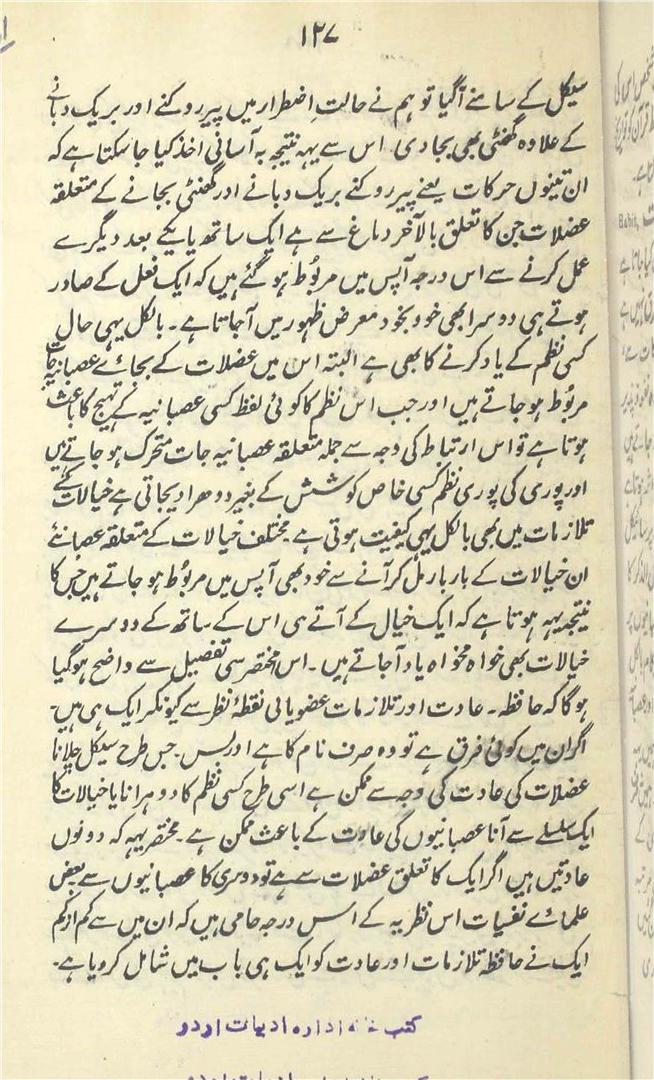 ۱۲۷
سیکل کے سامنے آگیا تو ہم نے حالتِ اضطرار میں پیر روکنے اور بریک دبانے
کے علاوہ گھنٹی بھی بجا دی۔ اس سے یہہ نتیجہ بہ آسانی اخذ کیا جا سکتا ہے کہ
ان تینوں حرکات یعنے پیر روکنے بریک دبانے اور گھنٹی بجانے کے متعلقہ
عضلات جن کا تعلق بالآخر دماغ سے ہے ایک ساتھ یا یکے بعد دیگرے
عمل کرنے سے اس درجہ آپس میں مربوط ہو گئے ہیں کہ ایک فعل کے صادر
ہوتے ہی دوسرا بھی خود بخود معرض ظہور میں آجاتا ہے۔ بالکل یہی حال
کسی نظم کے یاد کرنے کا بھی ہے البتہ اس میں عضلات کے بجائے عصبانیہ جات
مربوط ہو جاتے ہیں اور جب اس نظم کا کوئی لفظ کسی عصبانیہ کے تہیج کا باعث
ہوتا ہے تو اس ارتباط کی وجہ سے جملہ متعلقہ عصبانیہ جات متحرک ہو جاتے ہیں
اور پوری کی پوری نظم کسی خاص کوشش کے بغیر دوھرا دیجاتی ہے خیالات کے
تلازمات میں بھی بالکل یہی کیفیت ہوتی ہے۔ مختلف خیالات کے متعلقہ عصبانئے
ان خیالات کے بار بار مل کر آنے سے خود بھی آپس میں مربوط ہو جاتے ہیں جس کا
نتیجہ یہہ ہوتا ہے کہ ایک خیال کے آتے ہی اس کے ساتھ کے دوسرے
خیالات بھی خواہ مخواہ یاد آجاتے ہیں۔ اس مختصر سی تفصیل سے واضح ہوگیا
ہوگا کہ حافظہ۔ عادت اور تلازمات عضویاتی نقطۂ نظر سے کیونکر ایک ہی ہیں۔
اگر ان میں کوئی فرق ہے تو وہ صرف نام کا ہے اور بس۔ جس طرح سیکل چلانا
عضلات کی عادت کی وجہ سے ممکن ہے اسی طرح کسی نظم کا دوہرانا یا خیالات کا
ایک سلسلے سے آنا عصبانیوں کی عادت کے باعث ممکن ہے۔ مختصر یہہ کہ دونوں
عادتیں ہیں اگر ایک کا تعلق عضلات سے ہے تو دوسری کا عصبانیوں سے بعض
علمائے نفسیات اس نظریہ کے اس درجہ حامی ہیں کہ ان میں سے کم از کم
ایک نے حافظہ تلازمات اور عادت کو ایک ہی باب میں شامل کر دیا ہے۔
کتب خانہ ادارہ ادبیات اردو